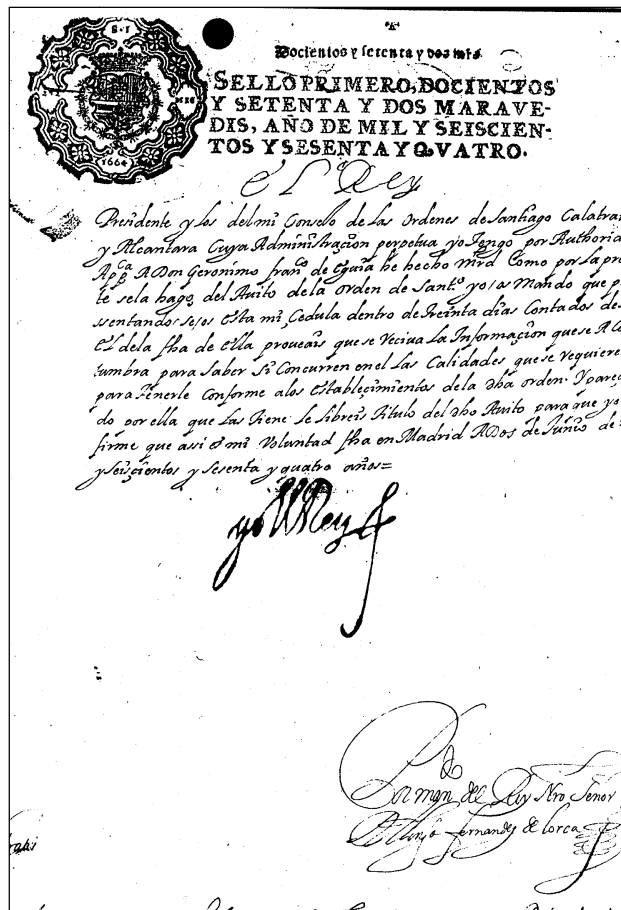 Docientos y setenta y dos mrs.
SELLO PRIMERO, DOCIENTOS
Y SETENTA Y DOS MARAVE-
DIS, AÑO DE MIL Y SEISCIEN-
TOS Y SESENTA Y QVATRO.
1664
El Rey
Presidente y los del mi Consejo de las Ordenes de Santiago Calatra
y Alcantara Cuya Administraçion perpetua yo Tengo por Authorid
App.ca A Don Geronimo fran.co de eguia he hecho mrd Como por la pre
te se la hago, del Auito de la orden de Sant.o yo os Mando que p
ssentandoseos esta mi Çedula dentro de Treinta dias Contados de
El de la fha de ella proueais que se Reciua La Informaçion que se A Co
tumbra para saber Si Concurren en el Las Calidades que se Requiere
para Tenerle Conforme a los establecimientos de la dha orden. Y pareç
do por ella que Las Tiene Le Libreis Titulo del dho Auito para que yo
firme que assi es mi Voluntad fha en Madrid A Dos de Junio de
y seisçientos y sesenta y quatro años=
yo el Rey
Por man.do del Rey Nro Señor
fernandez de Lorca